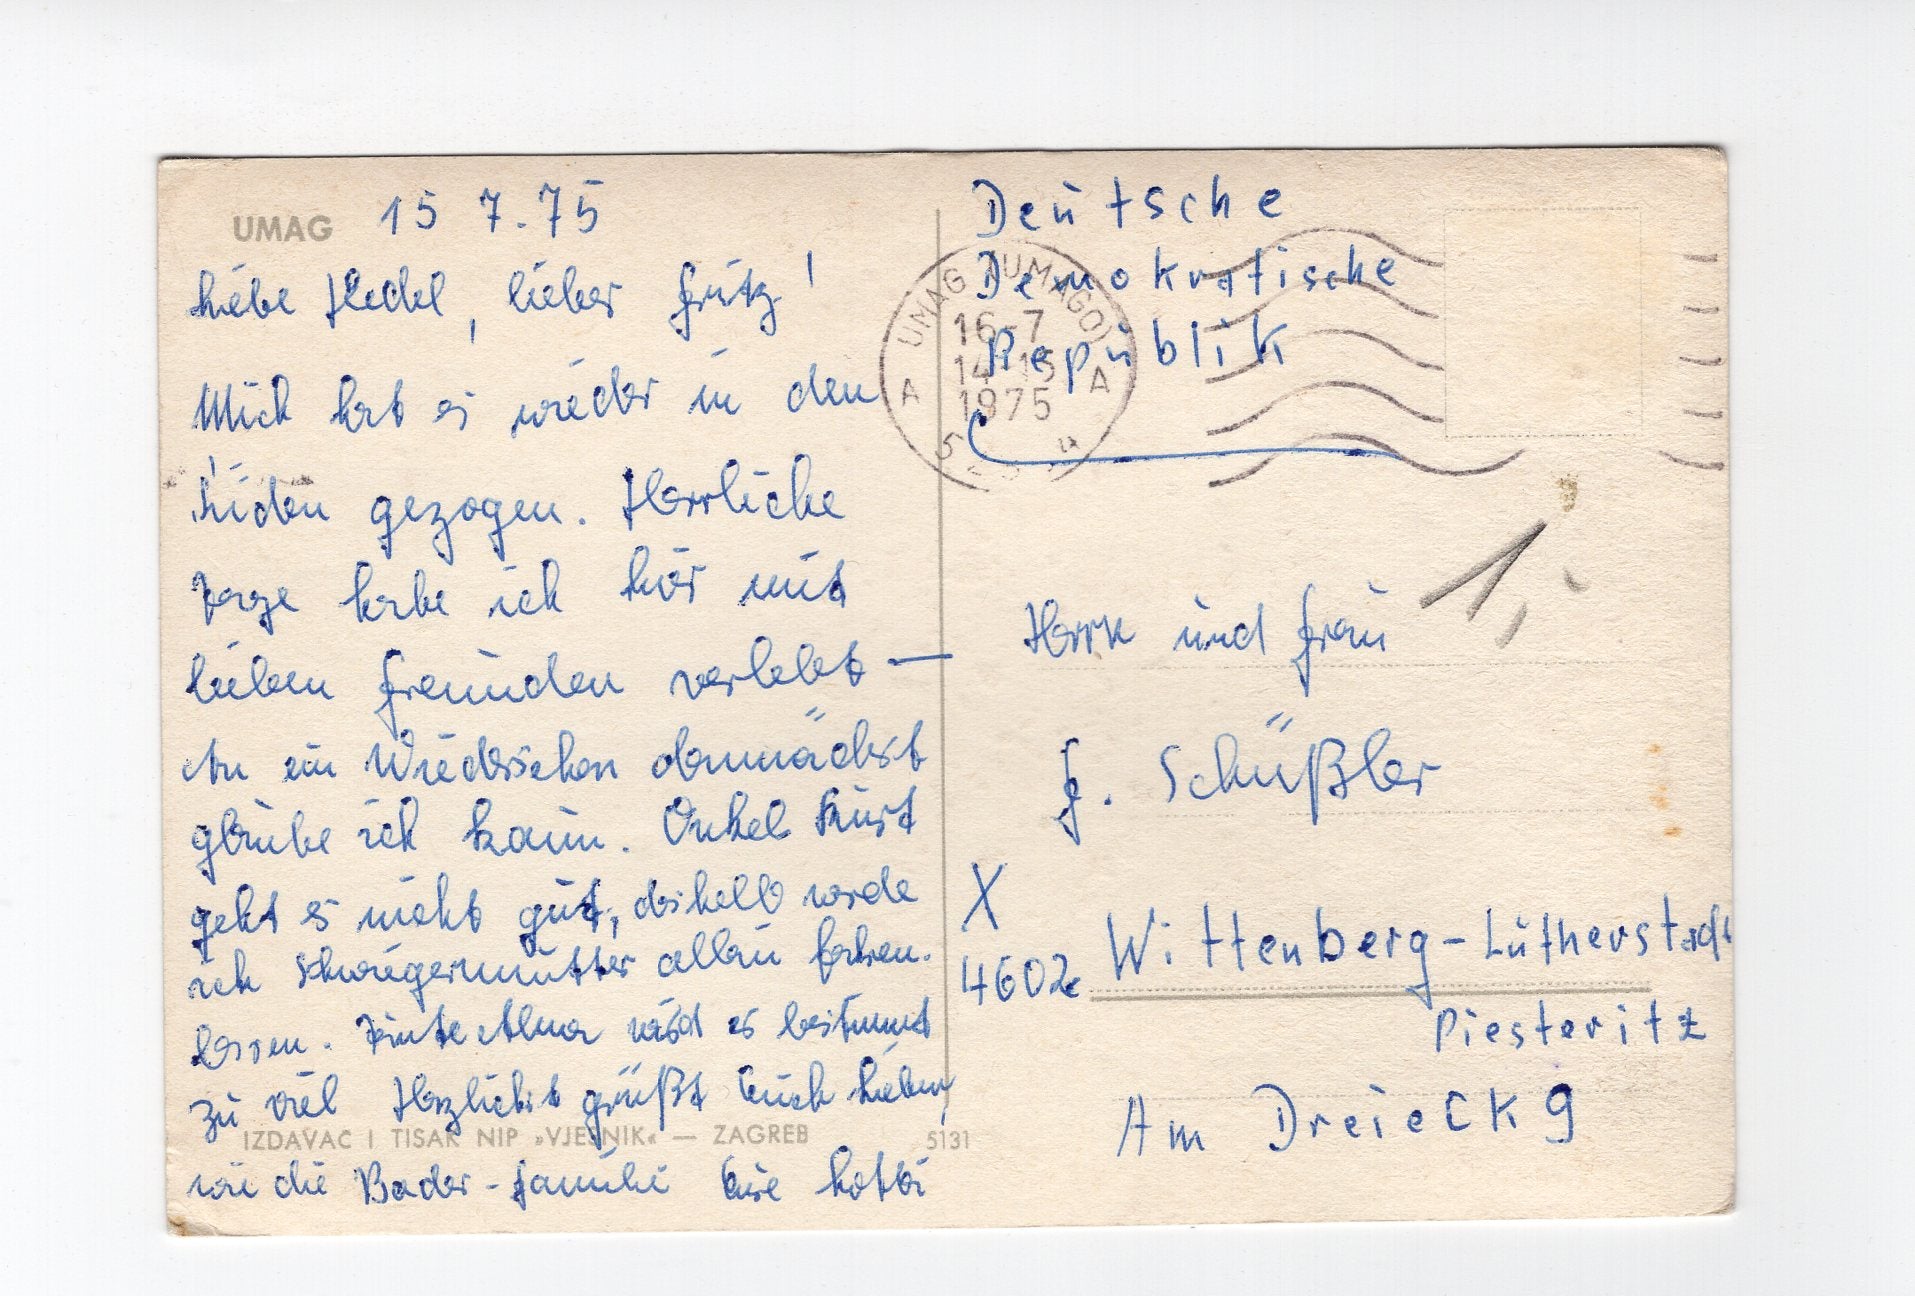 UMAG 15 7.75
Liebe Hedel, lieber Fritz!
Mich hat es wieder in den
Süden gezogen. Herrliche
Tage habe ich hier mit
lieben Freunden verlebt —
An ein Wiedersehen demnächst
glaube ich kaum. Onkel Kurt
geht es nicht gut, deshalb werde
ich Schwiegermutter allein fahren
lassen. Tante Alma wird es bestimmt
zu viel Herzlichst grüßt Euch Lieben,
wie die Bader-Familie Eure
IZDAVAC I TISAK NIP »VJESNIK« — ZAGREB 5131
Deutsche
Demokratische
Republik
UMAG (UMAGO)
16-7
14-15
1975
A A
1,-
Herrn und Frau
F. Schüßler
X
4602 Wittenberg-Lutherstadt
Piesteritz
Am Dreieck 9